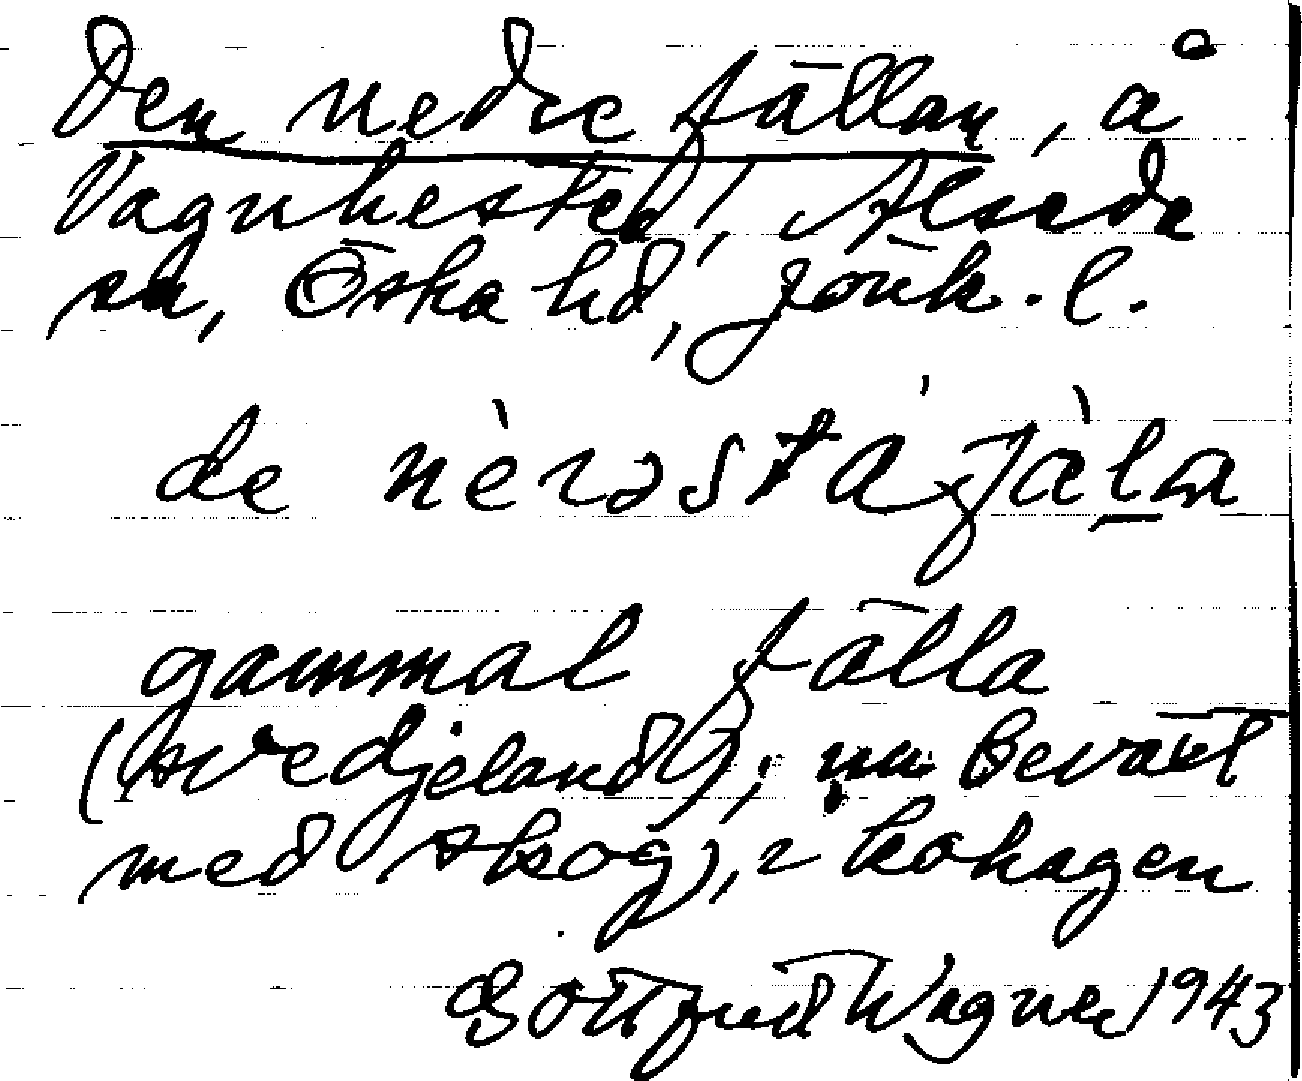 Den nedre fällan, å
Vagnhested, Alseda
sn, Östra hd, Jönk. l.
de nèrəsta fàl̠a
gammal fälla
(svedjeland), nu beväxt
med skog), i kohagen
Gottfrid Wagner 1943